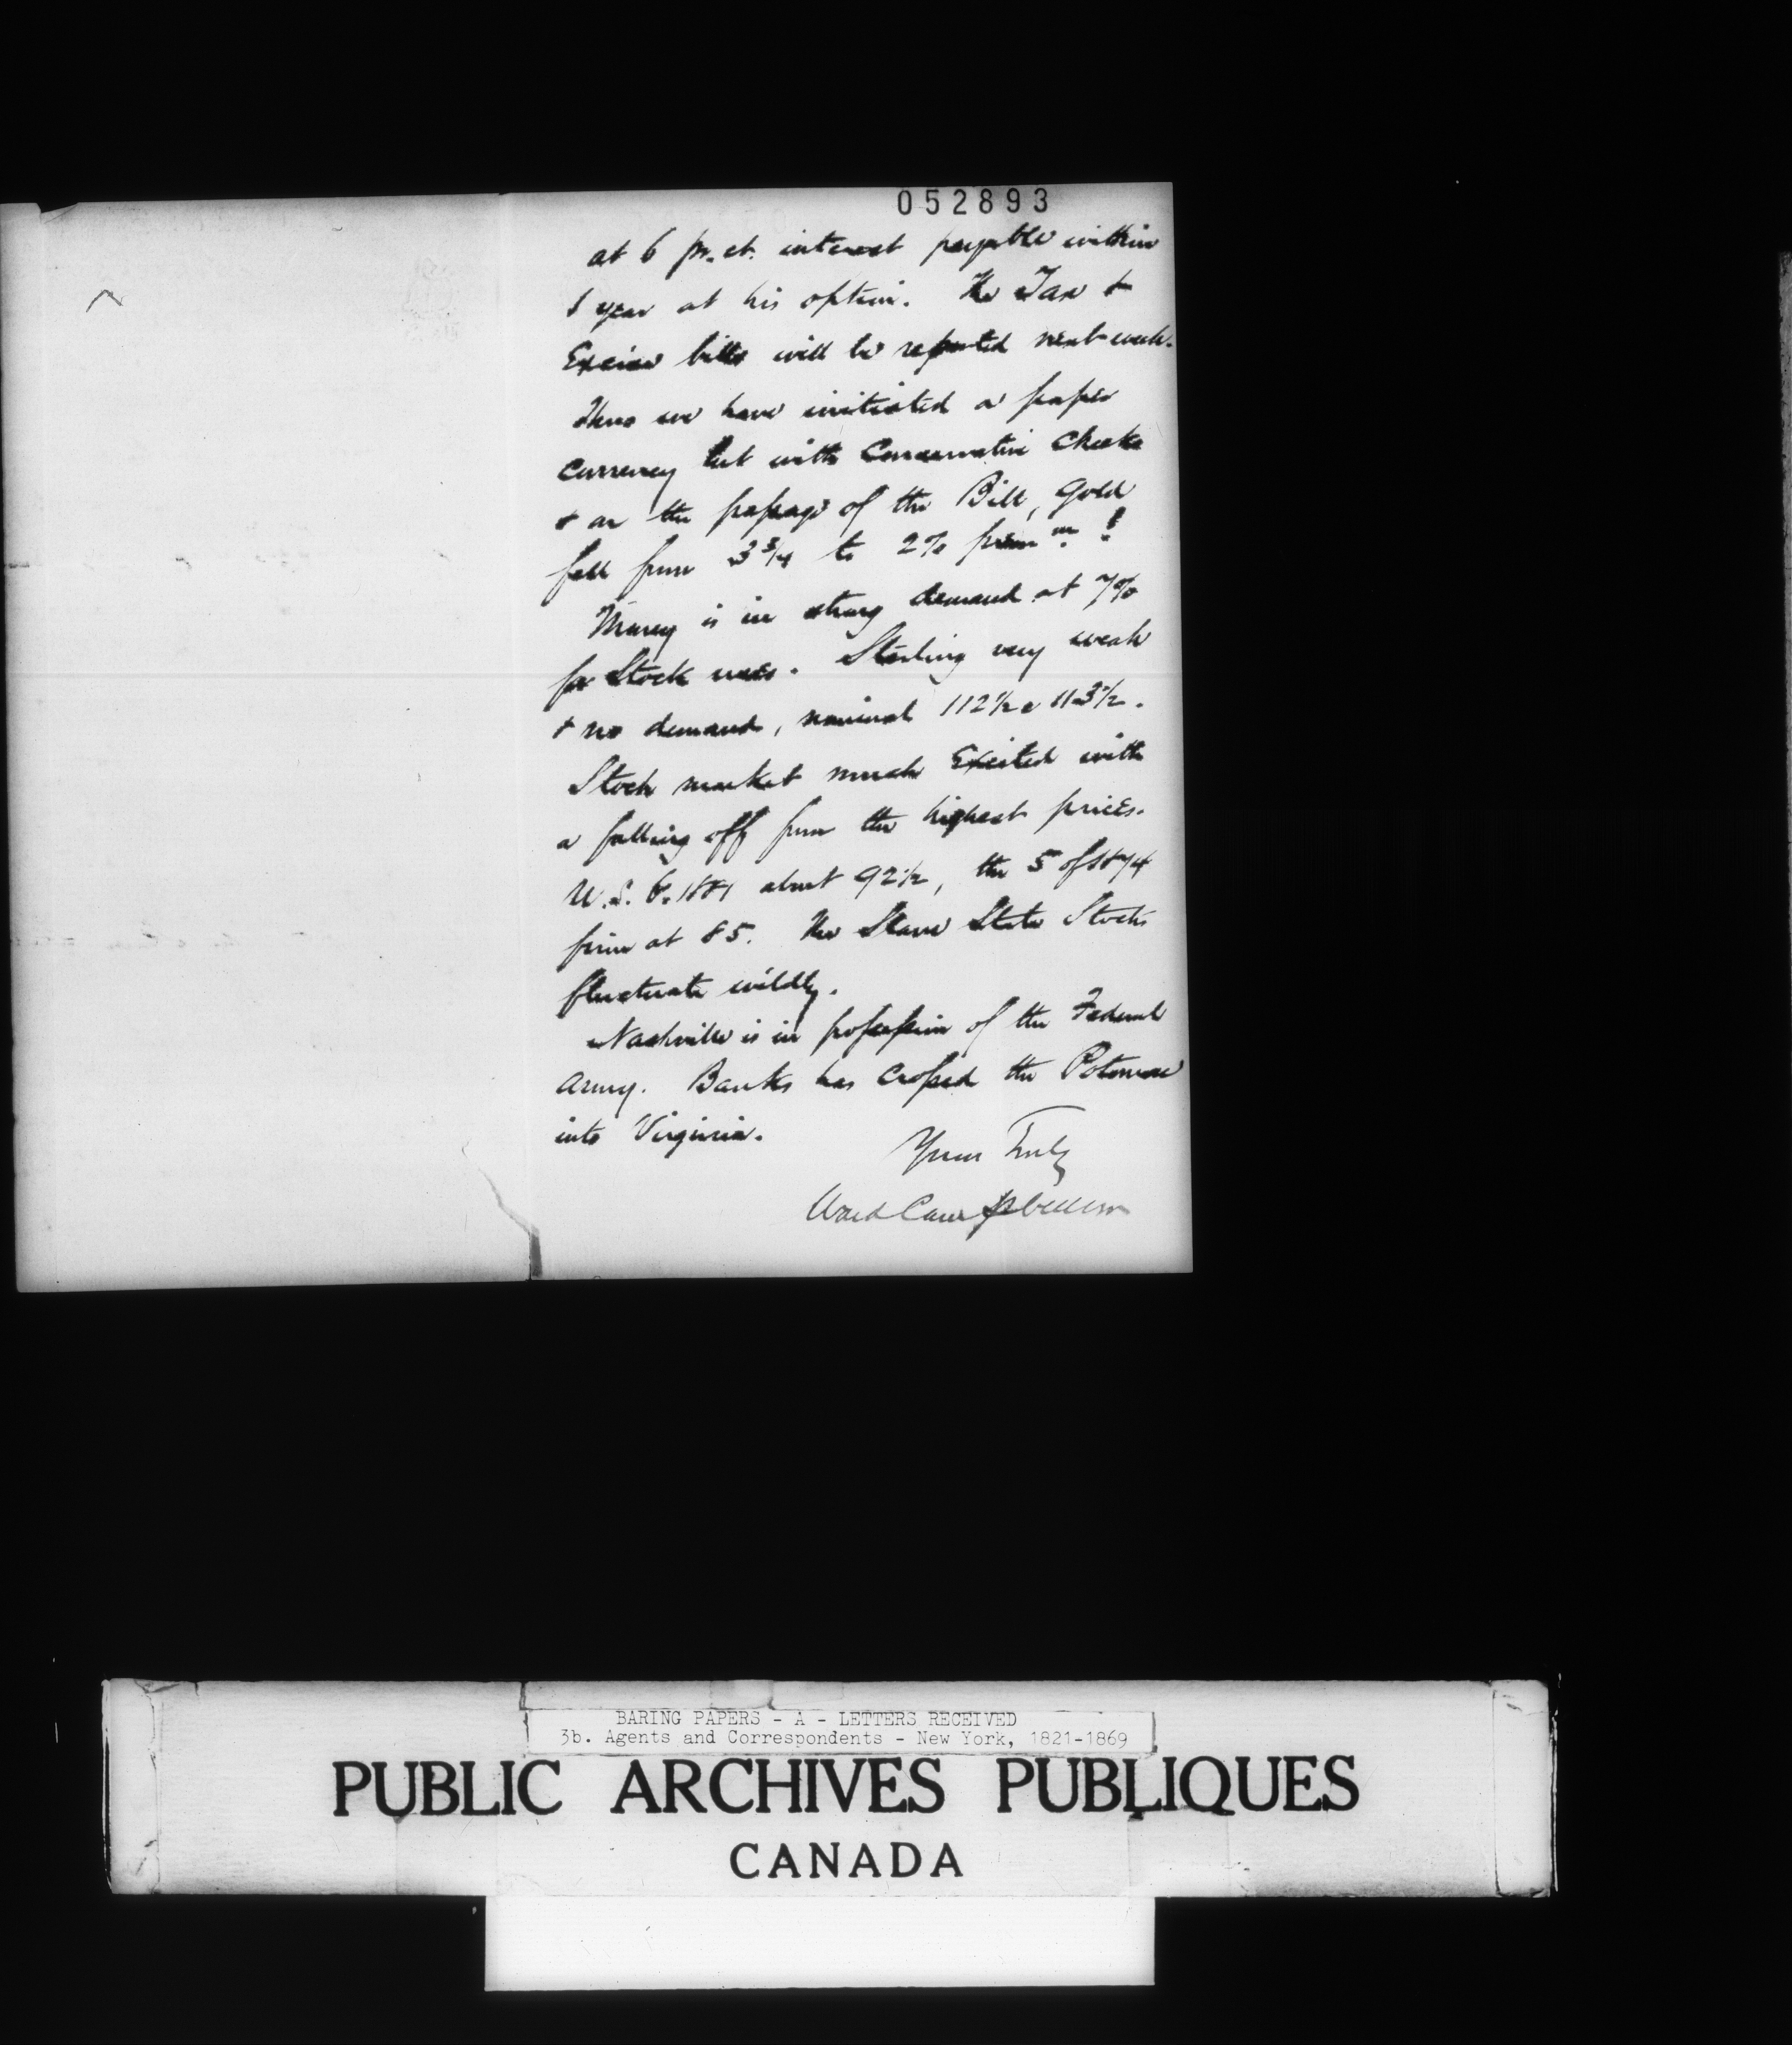 052893
at 6 pr. ct. interest payable within
1 year at his option. The Tax &
Excise bills will be reported next week.
Thus we have initiated a paper
currency but with Conservative Checks
& on the passage of the Bill, gold
fell from 3 3/4 to 2% prem m. !
Money is in strong demand at 7%
for Stock uses. Sterling very weak
& no demand, nominal 112 1/2 a 113 1/2.
Stock market much Excited with
a falling off from the highest prices.
U.S. 6. 1881 about 92 1/2, the 5 of 1874
firm at 85. The Slave State Stocks
fluctuate wildly.
Nashville is in possession of the Federal
Army. Banks has crossed the Potomac
into Virginia.
Yours Truly
Ward Campbell
BARING PAPERS - A - LETTERS RECEIVED
3b. Agents and Correspondents - New York, 1821-1869
PUBLIC ARCHIVES PUBLIQUES
CANADA